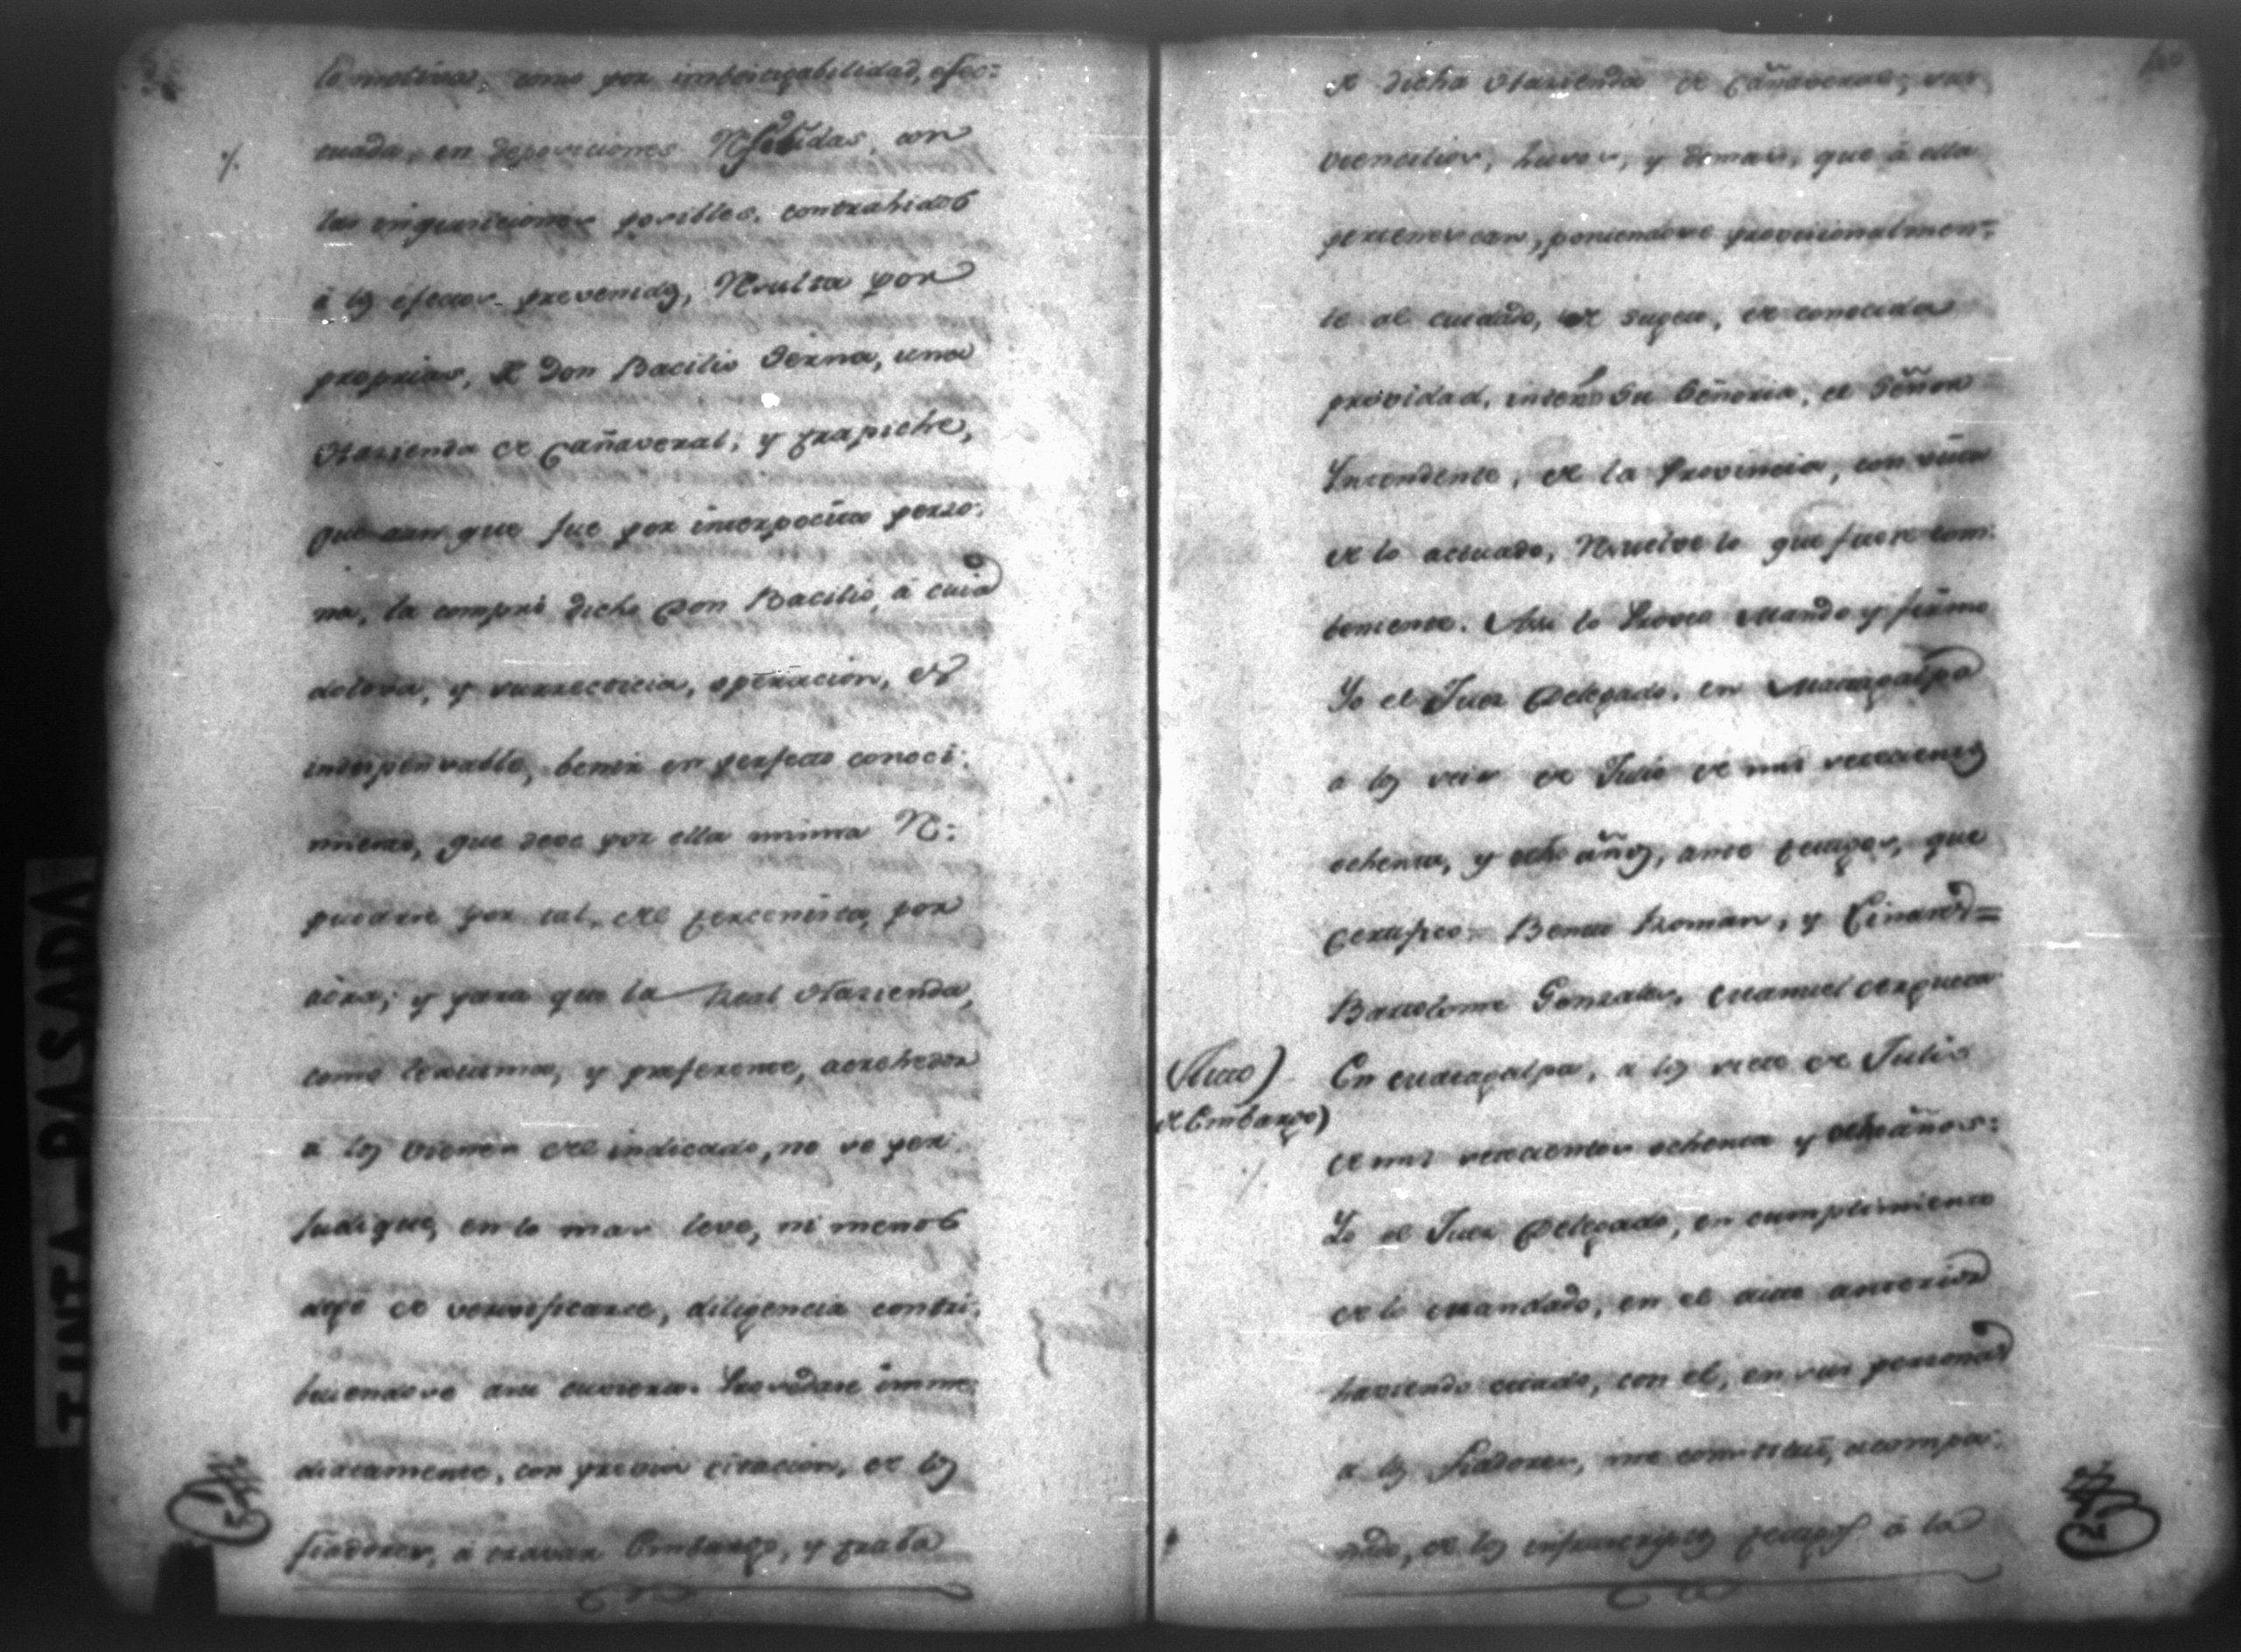 lo motivos, como por imbesigabilidad, efec=
tuada, en deposiciones Resebidas, con
las inquiciciones posibles, contrahidos
á los efectos prevenidos, Resulta por
proprios, de Don Bacilio Serna, una
Hazienda de Cañaveral, y trapiche,
que aun que fue por interpocita perso-
na, la compró dicho Don Bacilio, á cuia
dolosa, y surrecticia, operacion, es
indispensable, benir en perfecto conoci-
miento, que deve por ella misma Re-
putarse por tal, del tercenista, por
aora; y para que la Real Hazienda,
como lexitima, y preferente, acrehedora
a los vienes del indicado, no se per-
judique, en lo mas leve, ni menos
deje de versificarse, diligencia contri-
buiendose asu custodia. Procedase imme-
diatamente, con previa citacion, de los
fiadores, á travar Embargo, y traba
de dicha Hazienda de Cañaveral, sus
vtencilios, husos, y demas, que á ella
pertenescan, poniendose provicionalmen-
te al cuidado, de sugeto, de conocida
providad, interin Su Señoria, el Señor
Yntendente, de la Provincia, con vista
de lo actuado, Resuelve lo que fuere com-
beniente. Assi lo Proveo Mando y firmo
Yo el Juez Delegado, en Matagalpa
a los seis de Julio de mil setecientos
ochenta, y ocho años, ante testigos, que
Certifico = Benito Roman, y Linares =
Bartolome Gonzales, Manuel
(Auto)
de Embargo)
En Matagalpa, a los siete de Julio
de mil setecientos ochenta y ocho años:
Yo el Juez Delegado, en cumplimiento
de lo Mandado, en el auto anterior
haviendo citado, con el, en sus personas
a los Fiadores, me constitui, acompa-
ñado, de los infrascriptos testigos á la
TINTA PASADA